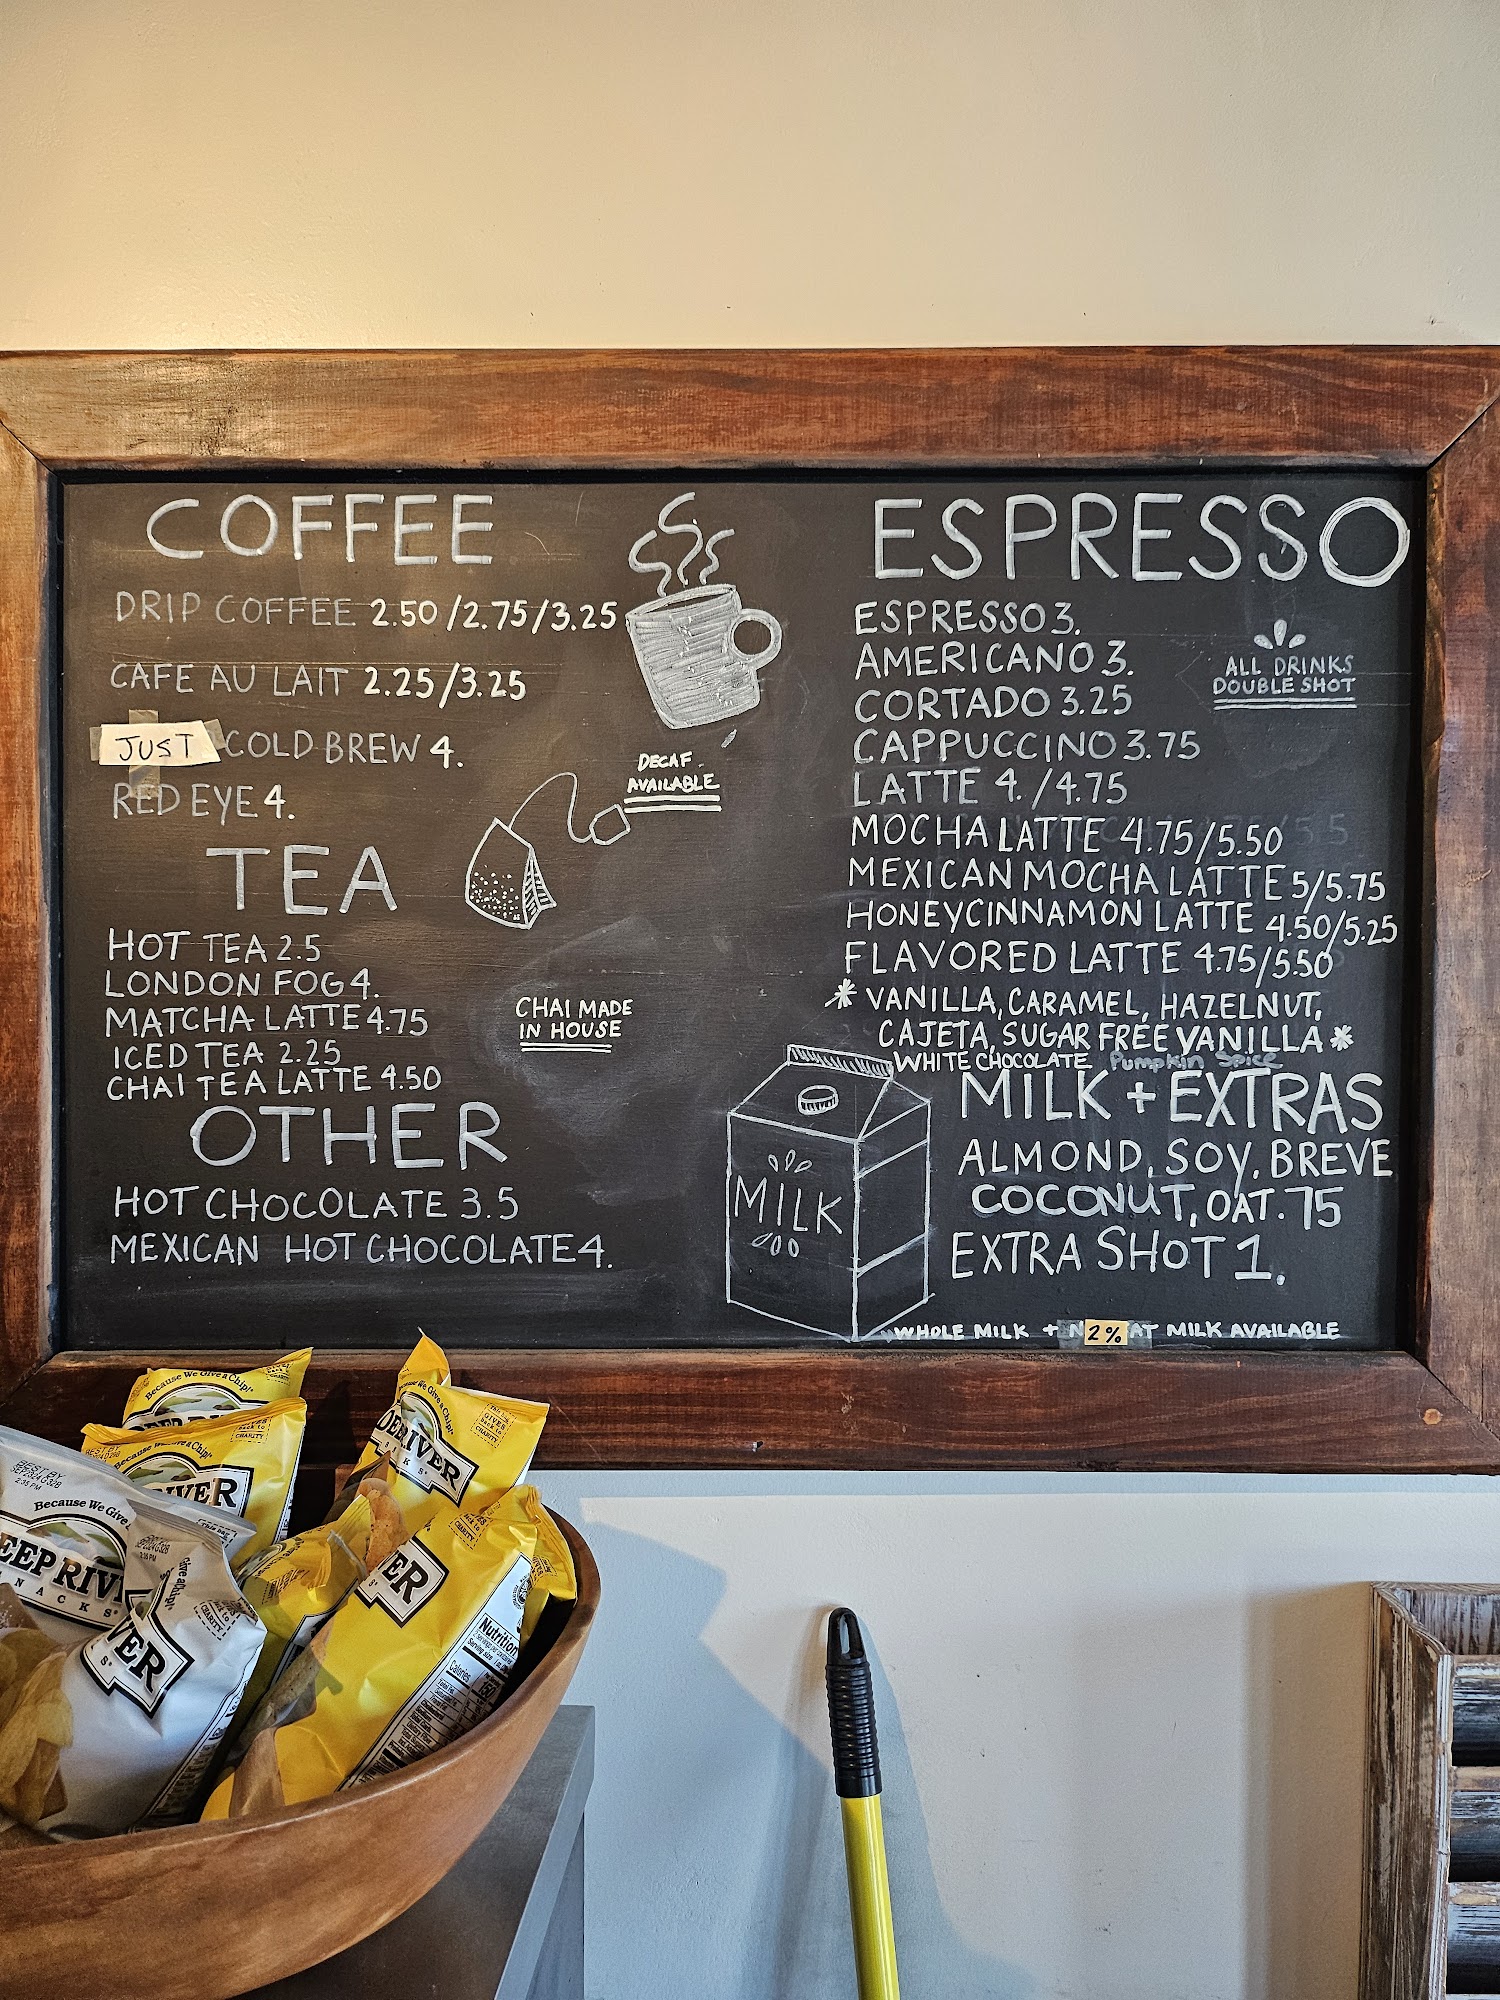 COFFEE
DRIP COFFEE 2.50/2.75/3.25
CAFE AU LAIT 2.25/3.25
JUST COLD BREW 4.
RED EYE 4.
DECAF
AVAILABLE
TEA
HOT TEA 2.5
LONDON FOG 4.
MATCHA LATTE 4.75
ICED TEA 2.25
CHAI TEA LATTE 4.50
CHAI MADE
IN HOUSE
OTHER
HOT CHOCOLATE 3.5
MEXICAN HOT CHOCOLATE 4.
ESPRESSO
ESPRESSO 3.
AMERICANO 3.
CORTADO 3.25
CAPPUCCINO 3.75
LATTE 4./4.75
ALL DRINKS
DOUBLE SHOT
MOCHA LATTE 4.75/5.50
MEXICAN MOCHA LATTE 5/5.75
HONEYCINNAMON LATTE 4.50/5.25
FLAVORED LATTE 4.75/5.50
* VANILLA, CARAMEL, HAZELNUT,
CAJETA, SUGAR FREE VANILLA *
WHITE CHOCOLATE Pumpkin Spice
MILK + EXTRAS
ALMOND, SOY, BREVE
COCONUT, OAT .75
EXTRA SHOT 1.
MILK
WHOLE MILK + 2% MILK AVAILABLE
Because We Give a Chip!
Because We Give a Chip!
RIVER
Because We Give a Chip!
DEEP RIVER
This bag
GIVES
back to
CHARITY
BEST BY
2:35 PM
Because We Give
DEEP RIVER
SNACKS
VER
ER
CHARITY
Nutrition
Calories 150